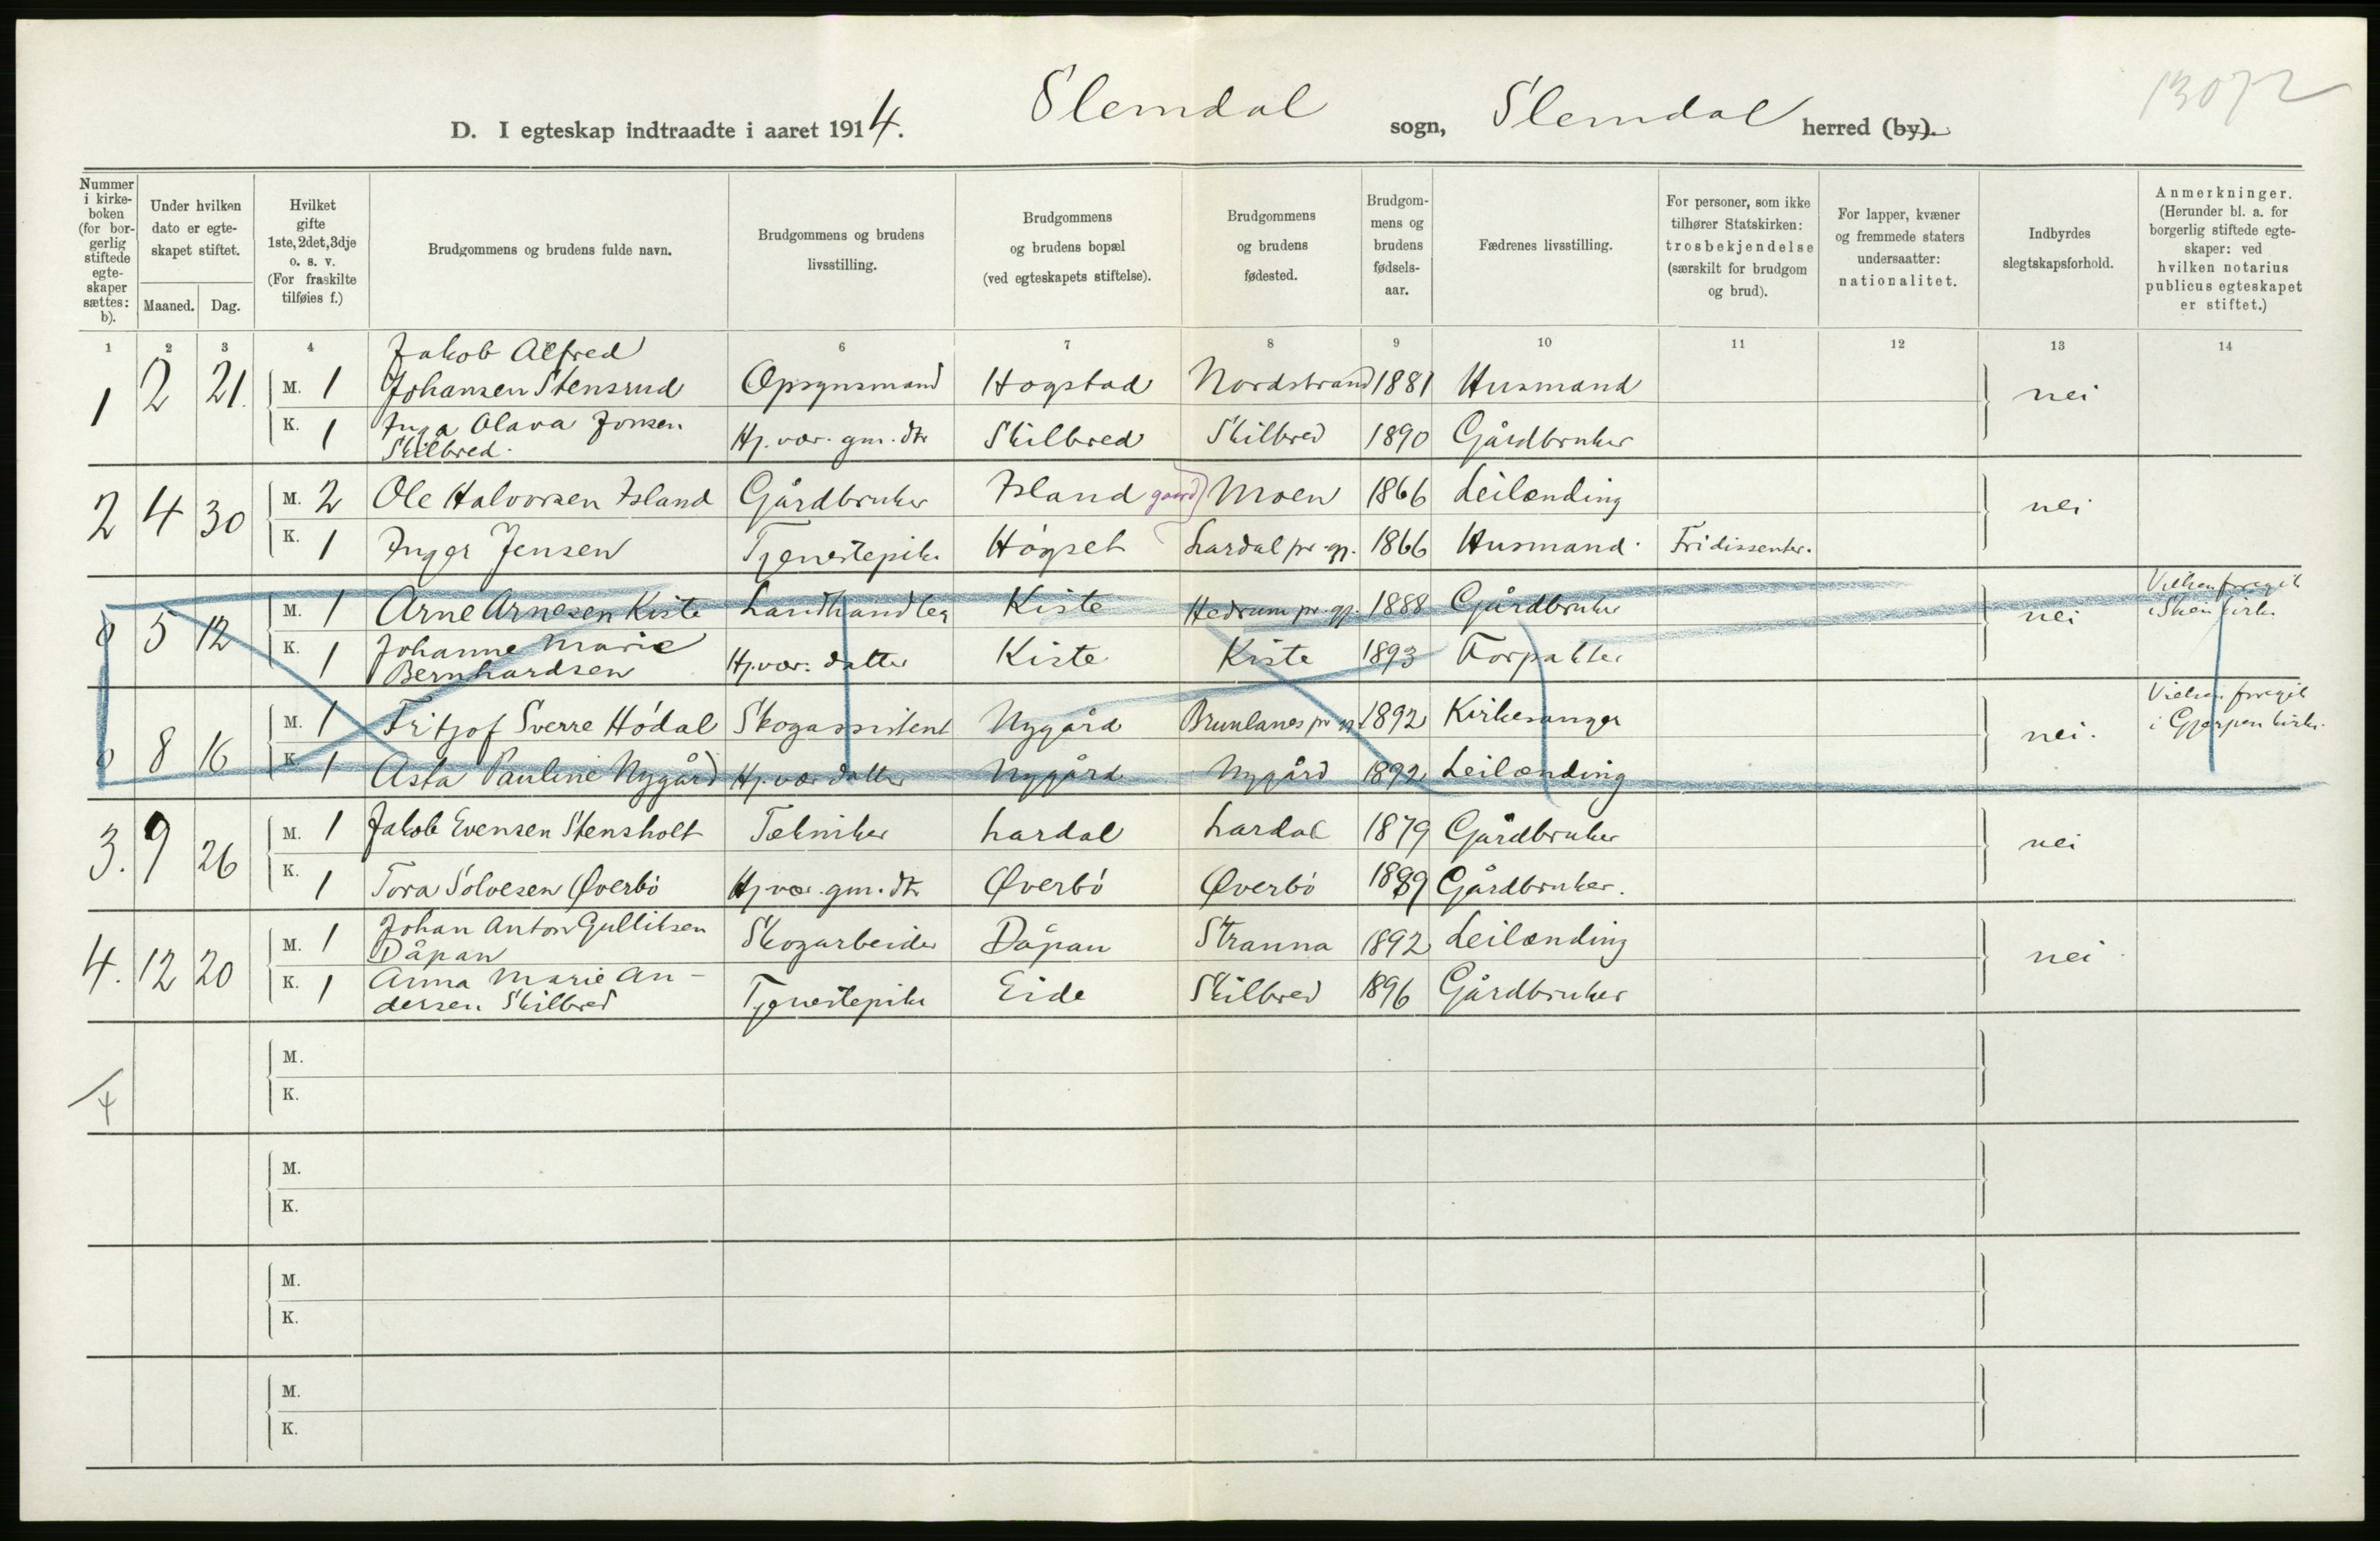 13072
D. I egteskap indtraadte i aaret 1914. Slemdal sogn, Slemdal herred (by).
Nummer i kirkeboken (for borgerlig stiftede egteskaper sættes: b).
Under hvilken dato er egteskapet stiftet.
Maaned. Dag.
Hvilket gifte 1ste, 2det, 3dje o. s. v. (For fraskilte tilføies f.)
Brudgommens og brudens fulde navn.
Brudgommens og brudens livsstilling.
Brudgommens og brudens bopæl (ved egteskapets stiftelse).
Brudgommens og brudens fødested.
Brudgommens og brudens fødselsaar.
Fædrenes livsstilling.
For personer, som ikke tilhører Statskirken: trosbekjendelse (særskilt for brudgom og brud).
For lapper, kvæner og fremmede staters undersaatter: nationalitet.
Indbyrdes slegtskapsforhold.
Anmerkninger. (Herunder bl. a. for borgerlig stiftede egteskaper: ved hvilken notarius publicus egteskapet er stiftet.)
1 2 3 4 6 7 8 9 10 11 12 13 14
1 2 21. M. 1 Jakob Alfred Johansen Stensrud Opsynsmand Hogstad Nordstrand 1881 Husmand nei
K. 1 Inga Olava Jonsen Skilbred. Hj. vær. gm. dtr Skilbred Skilbred 1890 Gårdbruker
2 4 30 M. 2 Ole Halvorsen Island Gårdbruker Island gaard Moen 1866 Leilænding nei
K. 1 Inger Jensen Tjenestepike Högset Lardal pr. gj. 1866 Husmand. Fridissenter.
0 5 12 M. 1 Arne Arnesen Kiste Landhandler Kiste Hedrum pr. gj. 1888 Gårdbruker nei Vielsen foregik i Skien kirke
K. 1 Johanne Marie Bernhardsen Hj. vær. datter Kiste Kiste 1893 Forpakter
0 8 16 M. 1 Fritjof Sverre Hödal Skogassistent Nygård Brunlanes pr gj 1892 Kirkesanger nei. Vielsen foregik i Gjerpen kirke.
K. 1 Asta Pauline Nygård Hj. vær datter Nygård Nygård 1892 Leilænding
3. 9 26 M. 1 Jakob Evensen Stensholt Tekniker Lardal Lardal 1879 Gårdbruker nei
K. 1 Tora Solvesen Øverbö Hj. vær. gm. dtr Øverbö Øverbö 1889 Gårdbruker.
4. 12 20 M. 1 Johan Anton Gulliksen Dåpan Skogarbeider Dåpan Stranna 1892 Leilænding nei.
K. 1 Anna Marie Andersen Skilbred Tjenestepike Eide Skilbred 1896 Gårdbruker
4
M.
K.
M.
K.
M.
K.
M.
K.